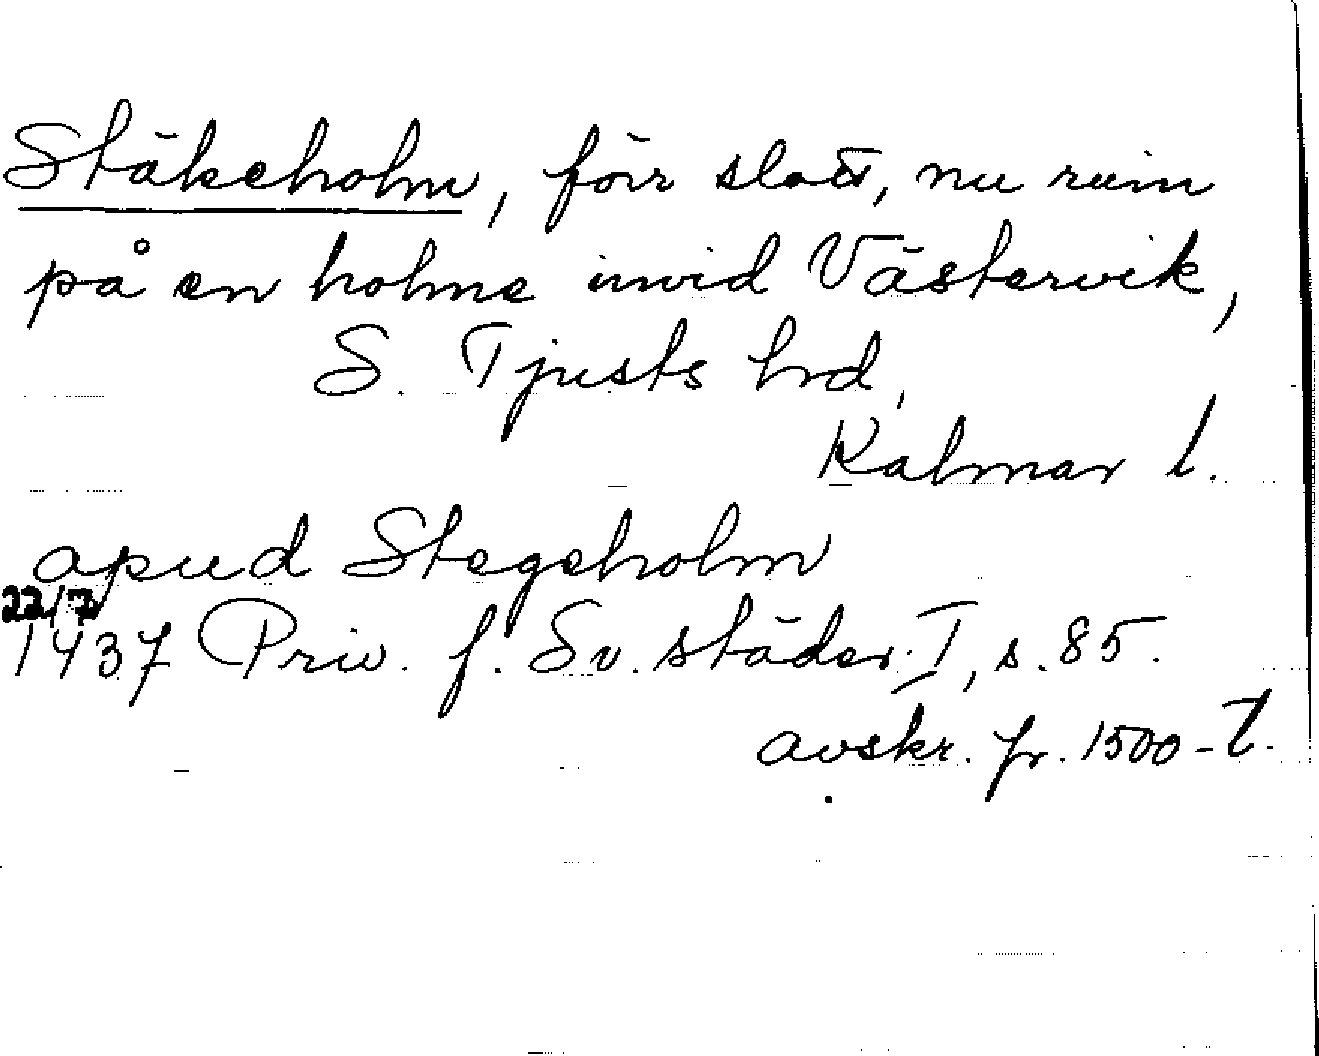 Stäkeholm, förr slott, nu ruin
på en holme invid Västervik,
S. Tjusts hrd,
Kalmar l.
apud Stegeholm
22/7
1437 Priv. f. Sv. städer I, s. 85.
avskr. fr. 1500-t.